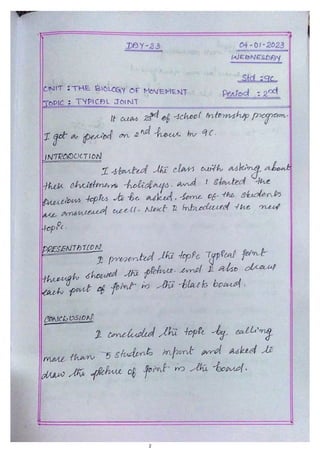 DAY-23
04-01-2023
WEDNESDAY
Std :9C
UNIT : THE BIOLOGY OF MOVEMENT
Period : 2nd
TOPIC : TYPICAL JOINT
It was 23rd of school internship program.
I got a period on 2nd hour in 9C.
INTRODUCTION
I started the class with asking about
their christmas holidays. and I started the
previous topics to be asked. Some of the students
are answered well. Next I introduced the new
topic.
PRESENTATION
I presented the topic Typical joint
through showed the picture. and I also draw
each part of joint in the black board.
CONCLUSION
I concluded the topic by calling
more than 5 students infront and asked to
draw the picture of joint in the board.
2